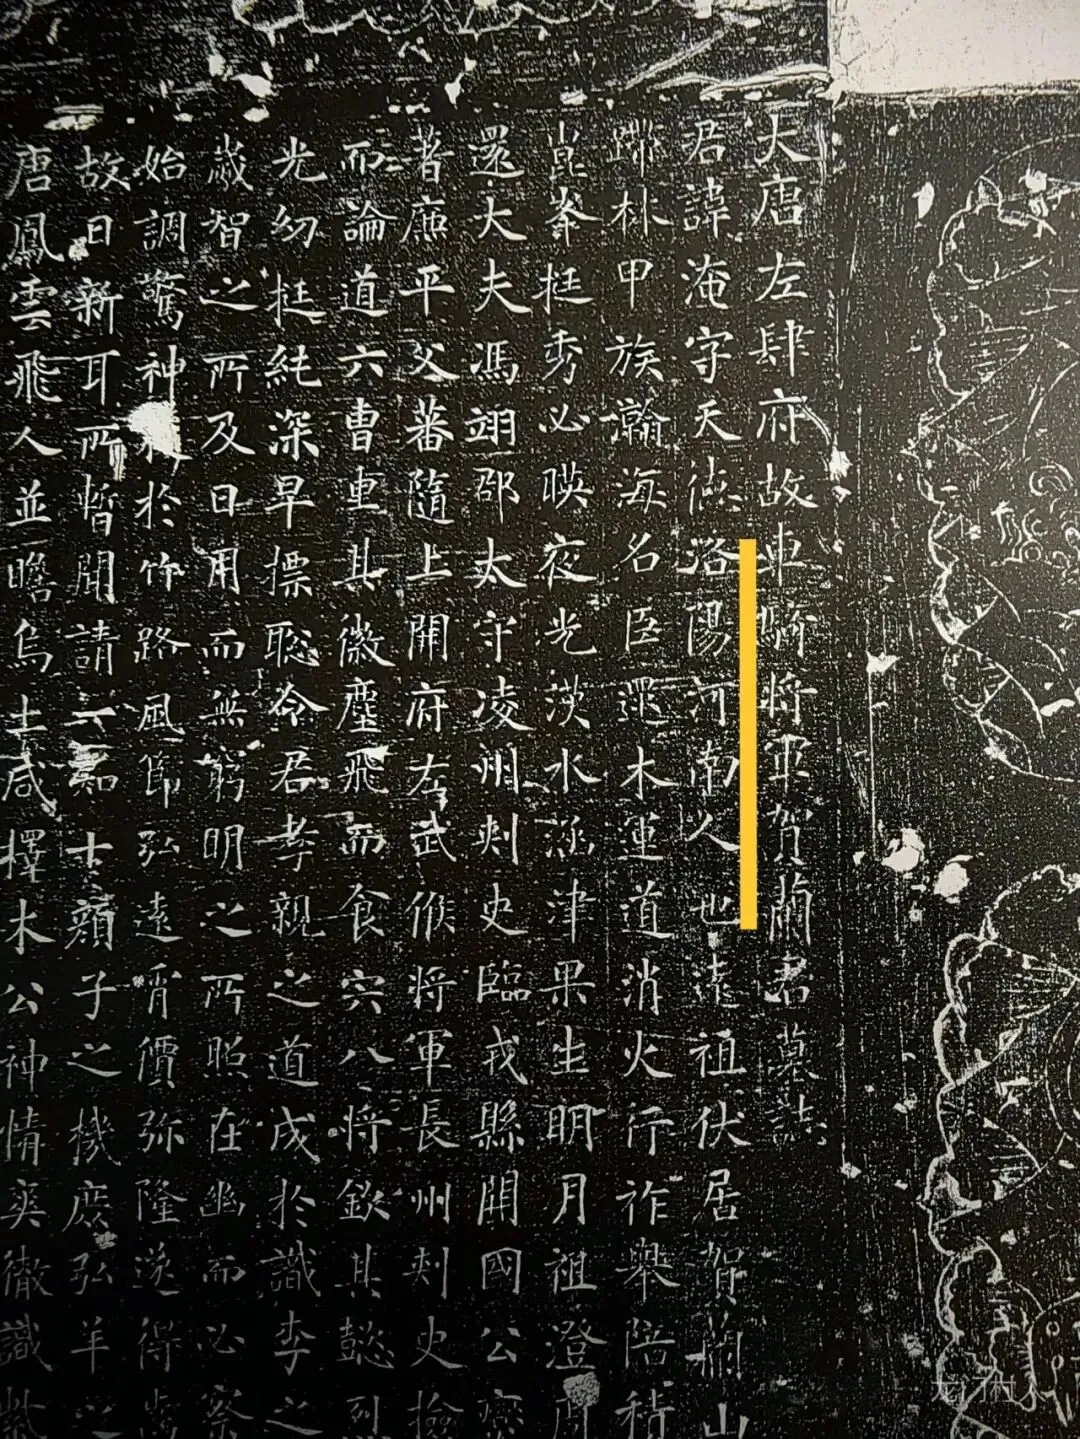 大唐左肆府故車騎将軍賀蘭君墓誌
君諱淹字天德洛陽河南人也遠祖伏居賀蘭山
跡朴甲族瀚海名臣還木運道消火行祚舉陪積
崑峯挺秀必暎夜光漢水涵津果生明月祖澄周
還大夫馮翊郡太守凌州刺史臨戎縣開國公
著廉平父蕃隨上開府左武候将軍長州刺史撿
而論道六曹車其徽塵飛而食宍八将欽其懿烈
光幼挺純深早摽聡令君孝親之道成於識李之
歲智之所及日用而無窮明之所照在幽而必察
始調驚神於竹路風節弘遠脊價弥隆遂得
故日新耳所暫聞請一知十顔子之機庶弘羊之
唐鳳雲飛人並瞻烏土咸擇木公神情爽徹識